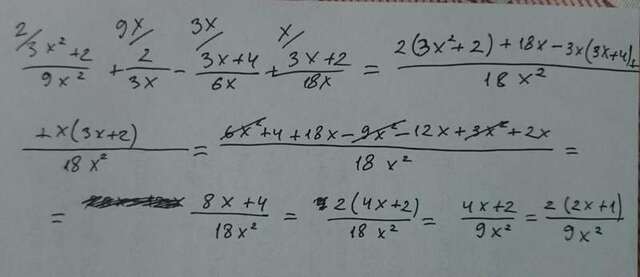 2/ 9x/ 3x/ x/
(3x²+2)/(9x²) + 2/(3x) − (3x+4)/(6x) + (3x+2)/(18x) = (2(3x²+2)+18x−3x(3x+4)+)/(18x²)
(+x(3x+2))/(18x²) = (6x²+4+18x−9x²−12x+3x²+2x)/(18x²) =
= (8x+4)/(18x²) = (2(4x+2))/(18x²) = (4x+2)/(9x²) = (2(2x+1))/(9x²)